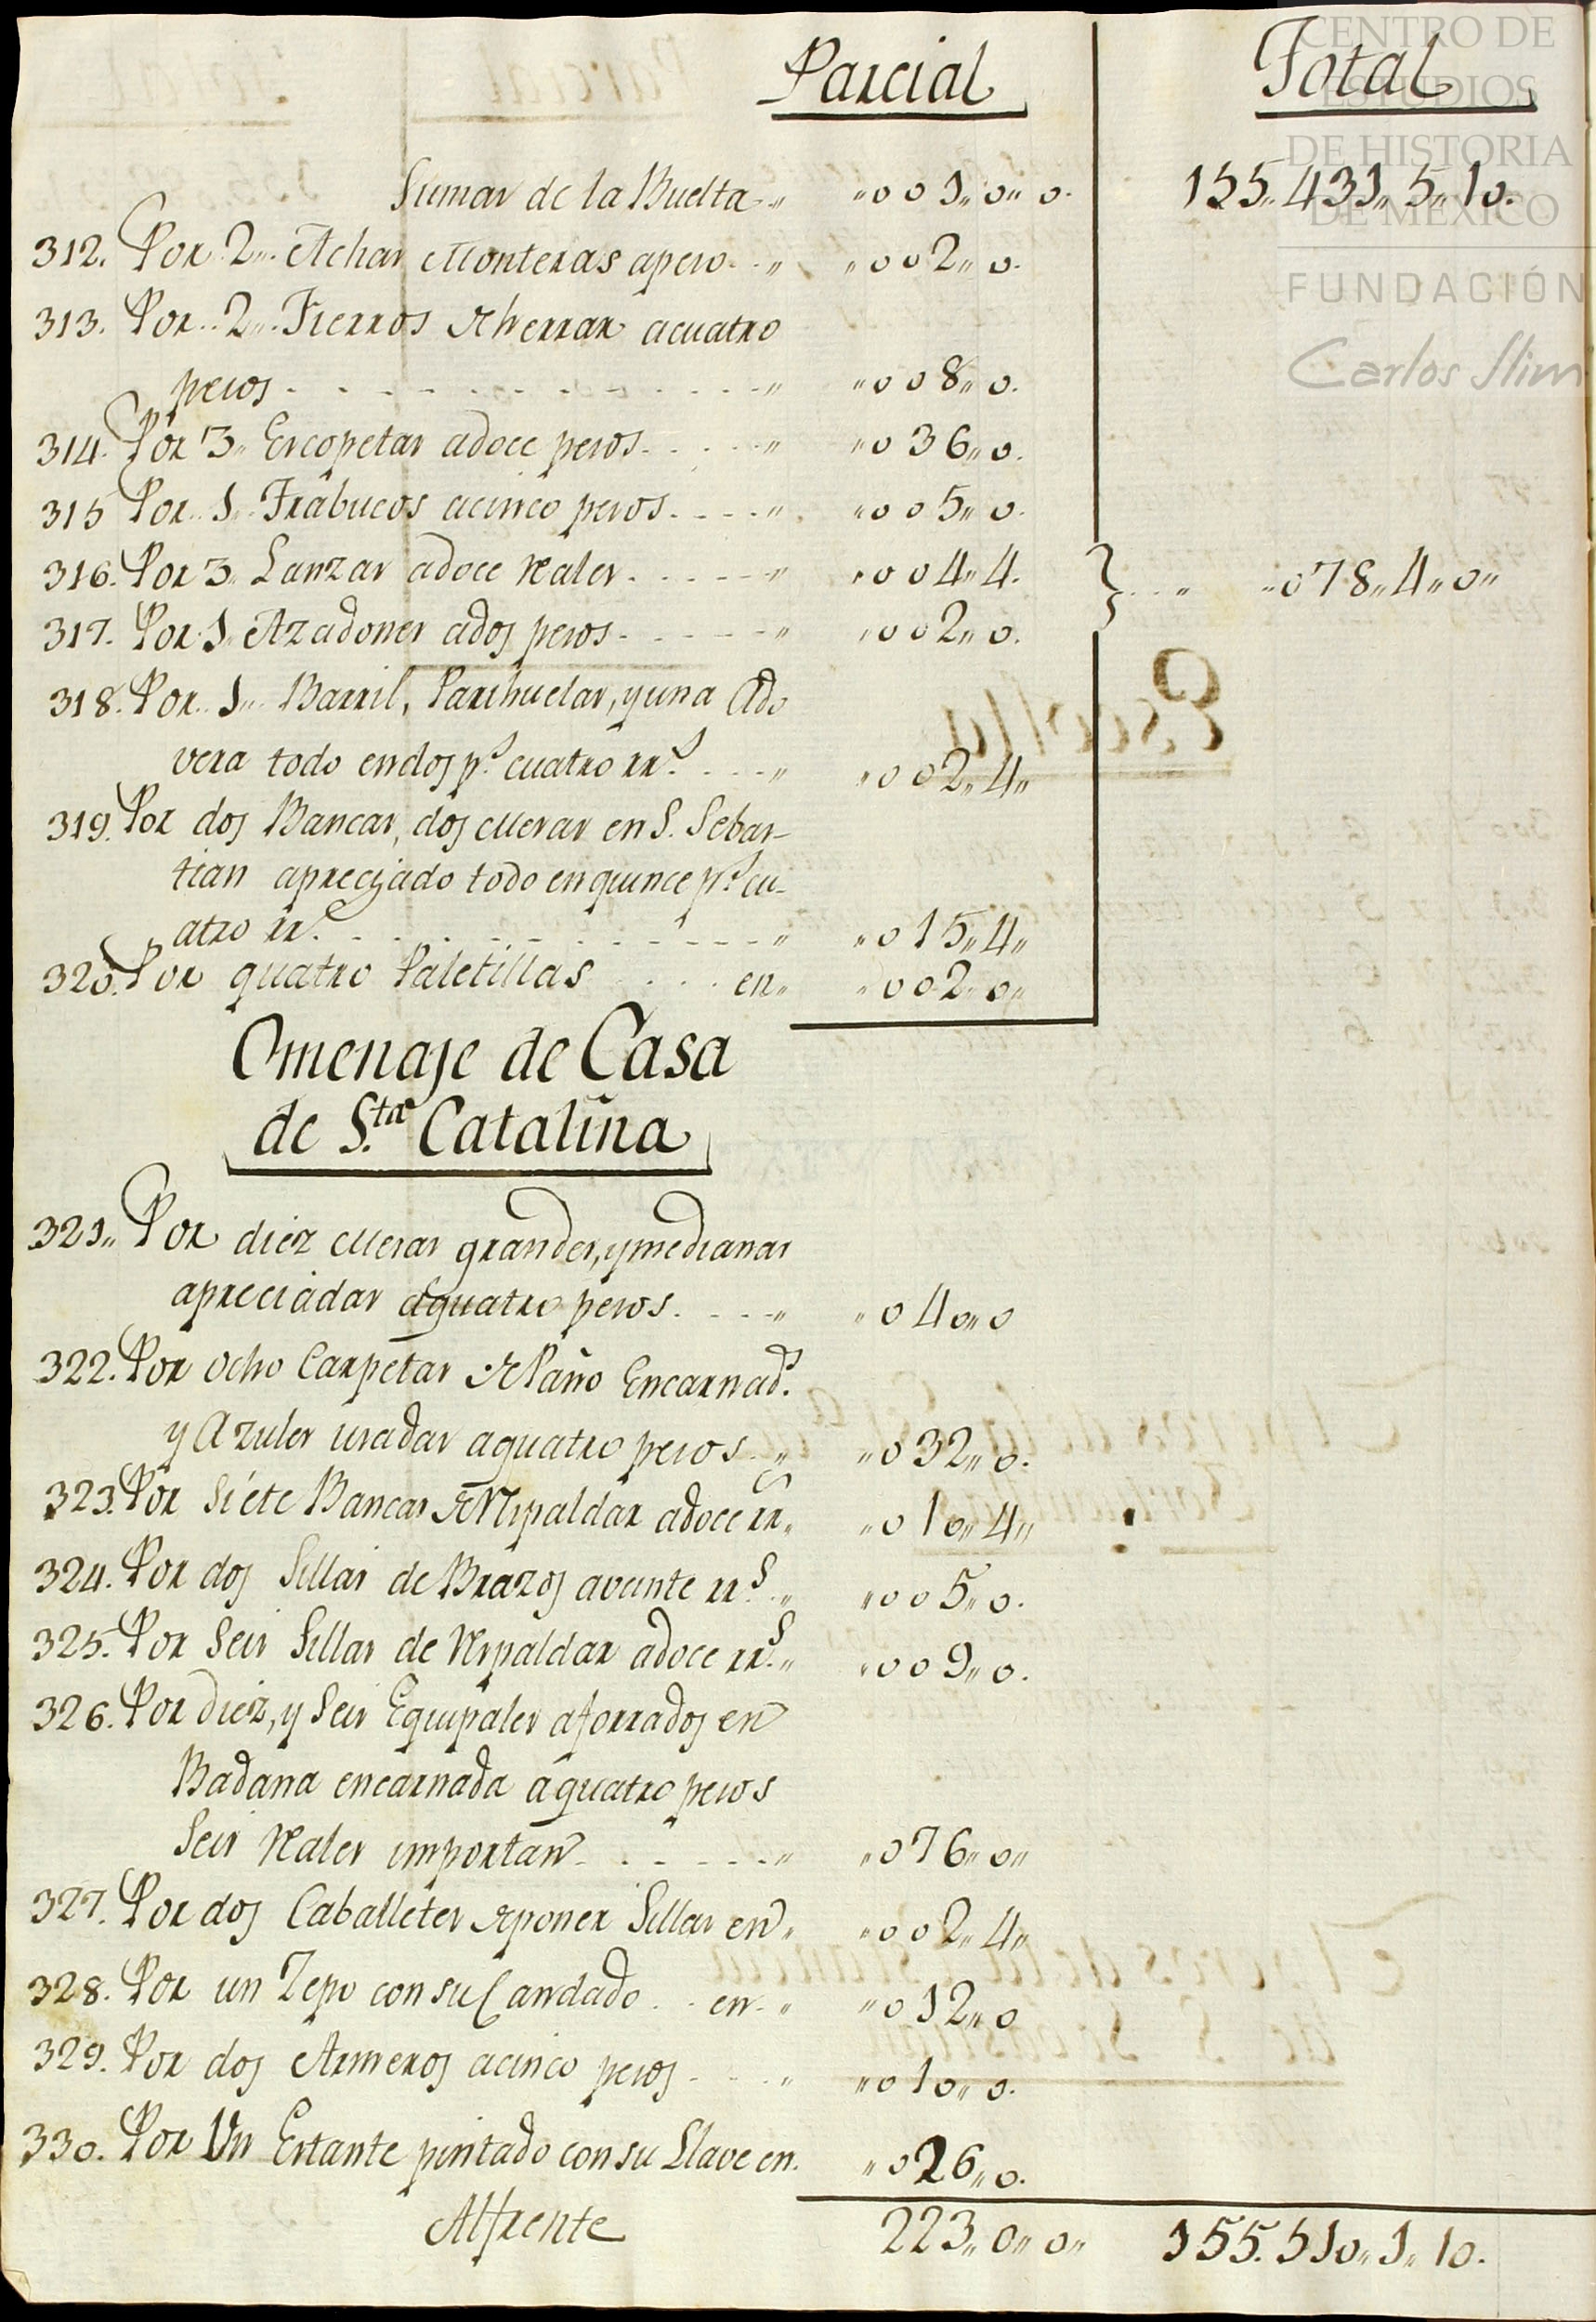 Parcial Total
Sumas de la Buelta „001„0„0. 155„431„5„10.
312. Por 2 Achas Monteras apeso „002„0.
313. Por 2 Fierros de herrar acuatro
pesos „008„0.
314. Por 3 Escopetas adoce pesos „036„0.
315 Por 1 Trabucos acinco pesos „005„0.
316. Por 3 Lanzas adoce reales „004„4. } „078„4„0„
317. Por 1 Azadones ados pesos „002„0.
318. Por 1 Barril, Parihuelas, y una Ado
vera todo endos p.s cuatro rr.s „002„4„
319. Por dos Bancas, dos Mesas en S. Sebas-
tian apreciado todo en quince p.s cu-
atro rr.s „015„4„
320. Por quatro Paletillas en „002„0„
Omenaje de Casa
de S.ta Catalina
321„ Por diez Mesas grandes, y medianas
apreciadas aquatro pesos „040„0
322. Por ocho Carpetas de Paño Encarnad.s
y Azules usadas aquatro pesos „032„0.
323. Por siete Bancas de Respaldar adoce rr. „010„4„
324. Por dos Sillas de Brazos aveinte rr.s „005„0.
325. Por Seis Sillas de Respaldar adoce rr.s „009„0.
326. Por diez, y Seis Equipales aforrados en
Badana encarnada aquatro pesos
Seis Reales importan „076„0„
327. Por dos Caballetes de poner Sillas en „002„4„
328. Por un Zepo con su Candado en „012„0
329. Por dos Armeros acinco pesos „010„0.
330. Por Un Estante pintado con su Llave en. „026„0.
Alfrente 223„0„0„ 155.510„1„10.
CENTRO DE
ESTUDIOS
DE HISTORIA
DE MÉXICO
FUNDACIÓN
Carlos Slim